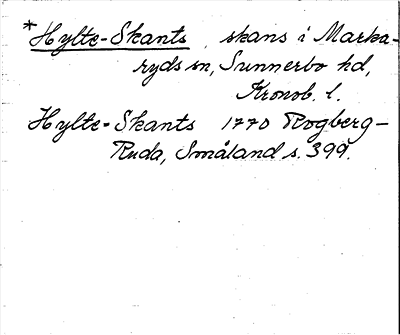 *Hylte-Skants, skans i Marka-
ryds sn, Sunnerbo hd,
Kronob. l.
Hylte-Skants 1770 Rogberg-
Ruda, Småland s. 399.